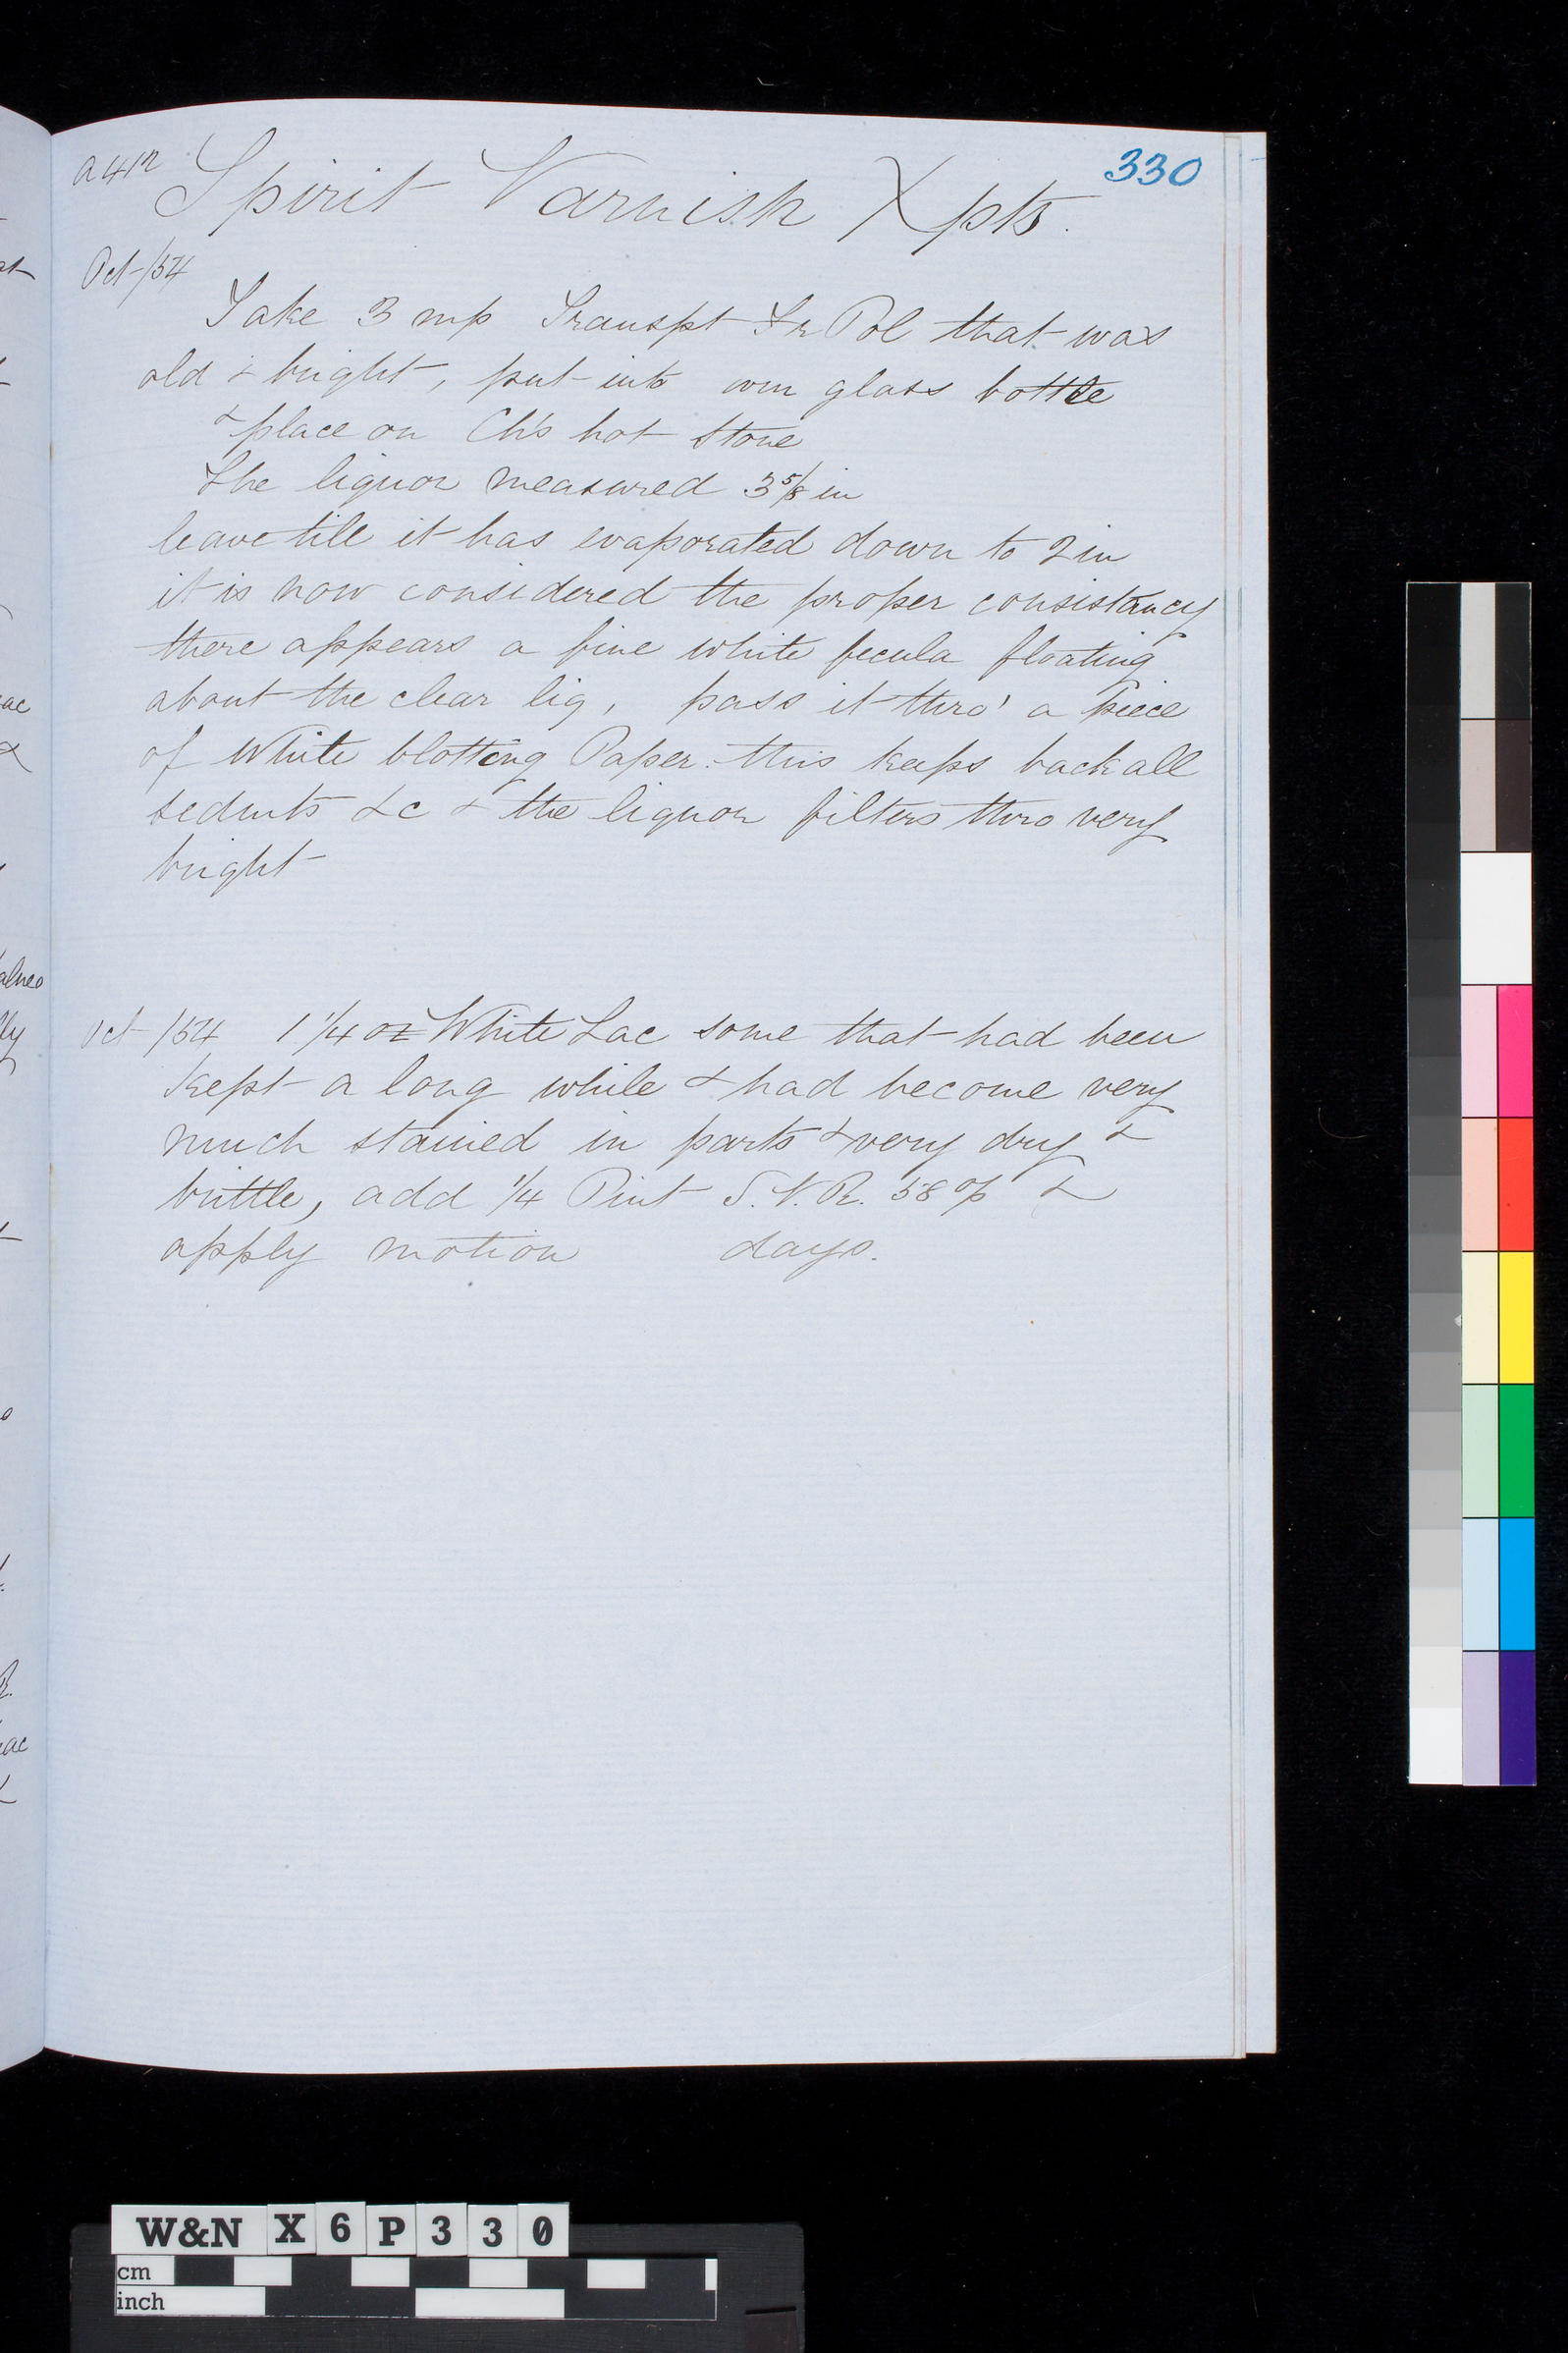 a 412 Spirit Varnish Xpts. 330
Oct /54
Take 3 mp Transpt Fr Pol that was
old & bright, put into own glass bottle
& place on Ch's hot Stove
The liquor measured 3 5/8 in
leave till it has evaporated down to 2 in
it is now considered the proper consistancy
there appears a fine white fecula floating
about the clear liq, pass it thro' a piece
of White blotting Paper. this keeps back all
sedmts &c & the liquor filters thro very
bright
Oct /54 1 1/4 oz White Lac some that had been
kept a long while & had become very
much stained in parts & very dry &
brittle, add 1/4 Pint S.V.R. 58 op &
apply motion days.
W&N X6P330
cm
inch